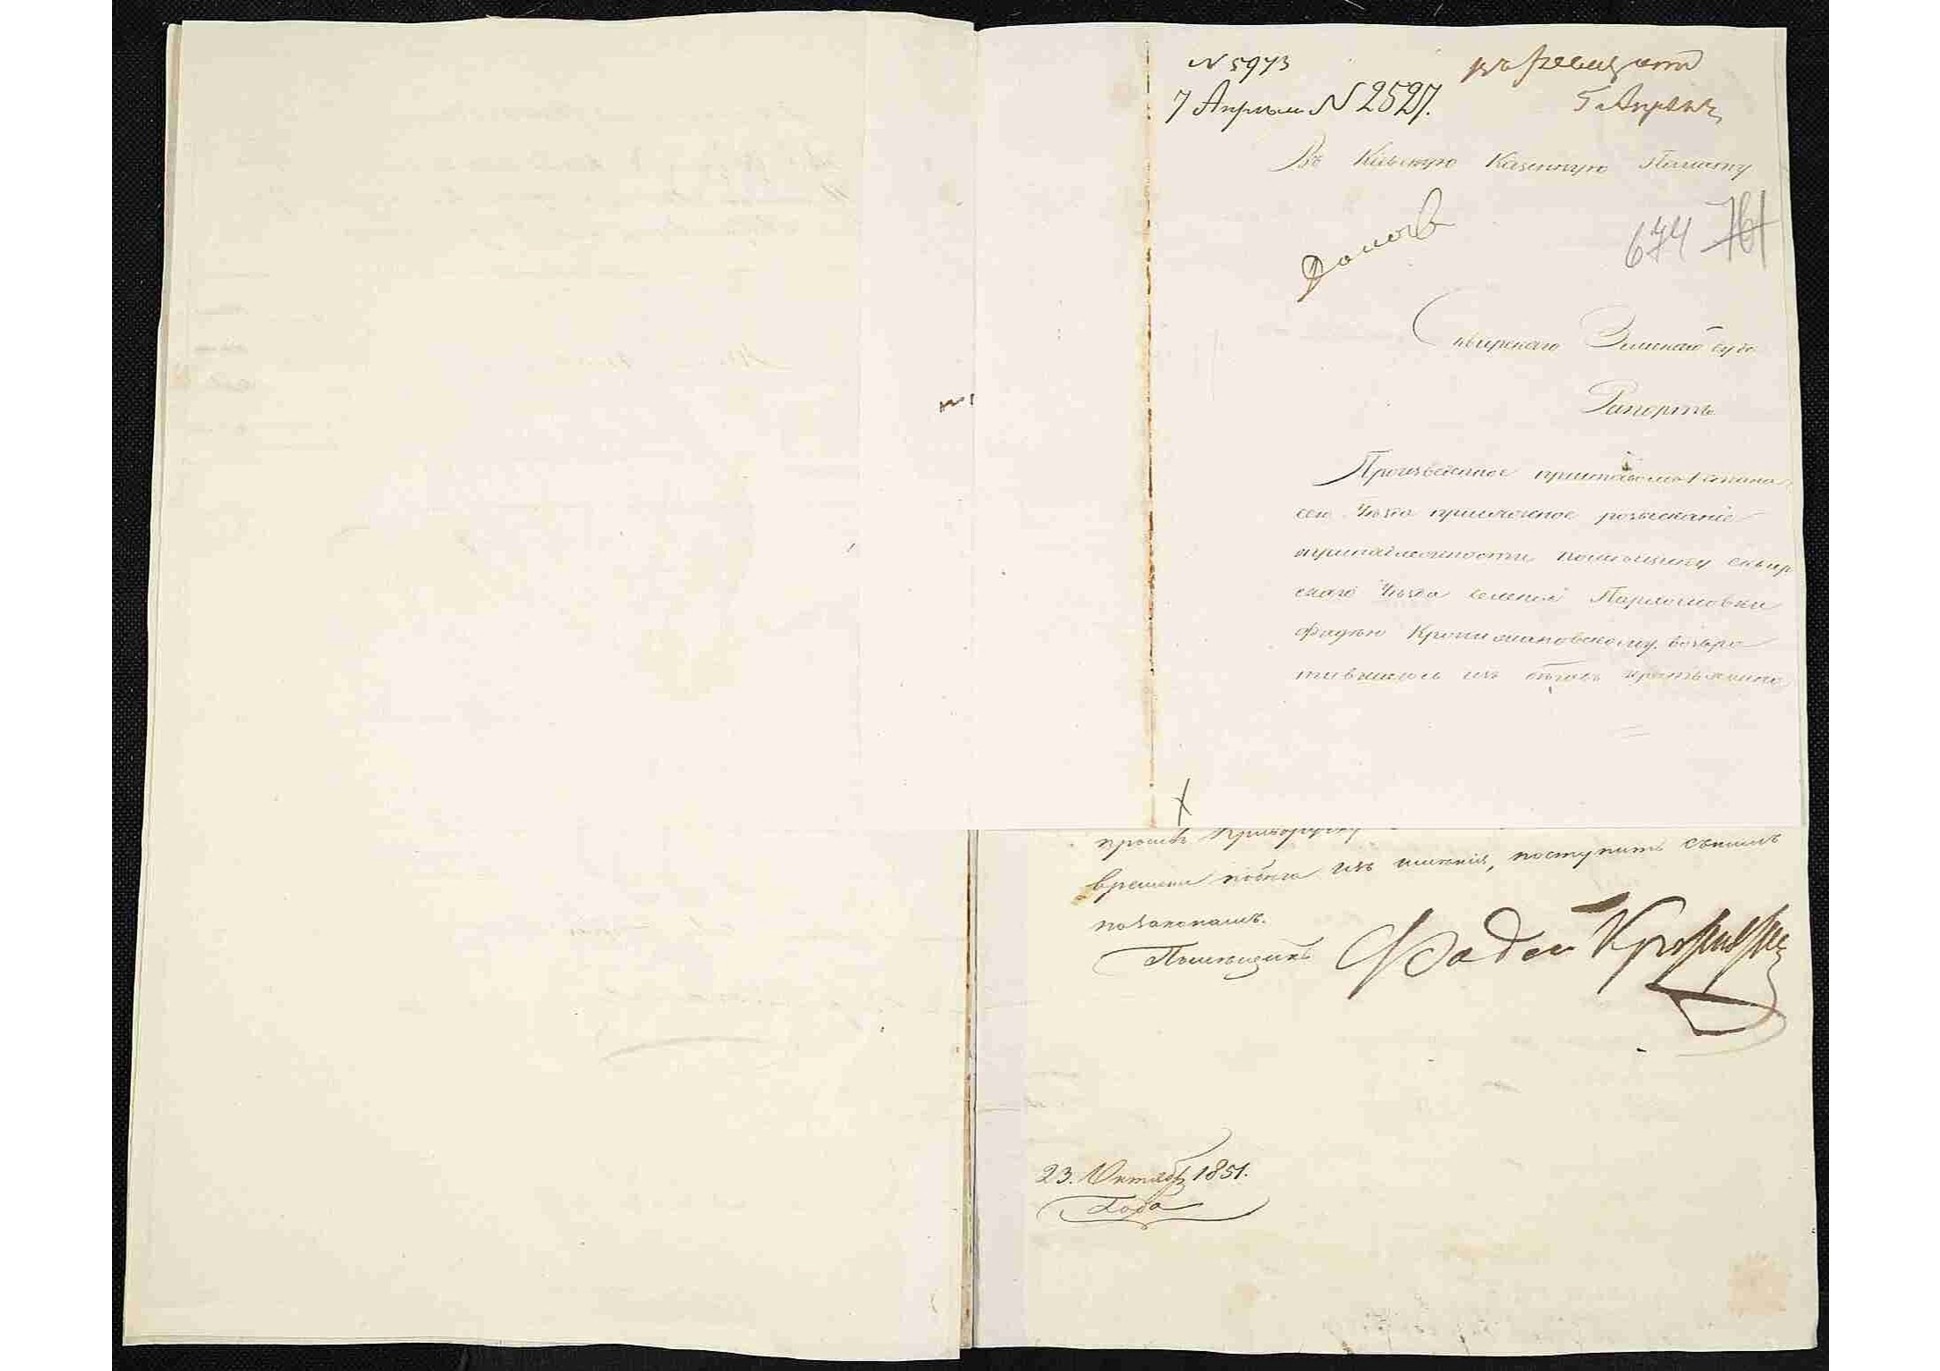 N 5973
7 Апреля N 2527.
5 Апреля
Въ Кіевскую Казенную Палату
674 761
Сквирскаго Земскаго суда
Рапортъ
Произведенное приставомъ 1 стана
сего Уѣзда розысканіе
о принадлежности помѣщику сквир
скаго Уѣзда селенія Пархомовки
Фадѣю возвро
тившагося изъ бѣговъ крестьянина
просивъ
времени побѣга изъ имѣнія, поступить съ нимъ
по законамъ.
Помѣщикъ Фадей
23. Октября 1851.
Года